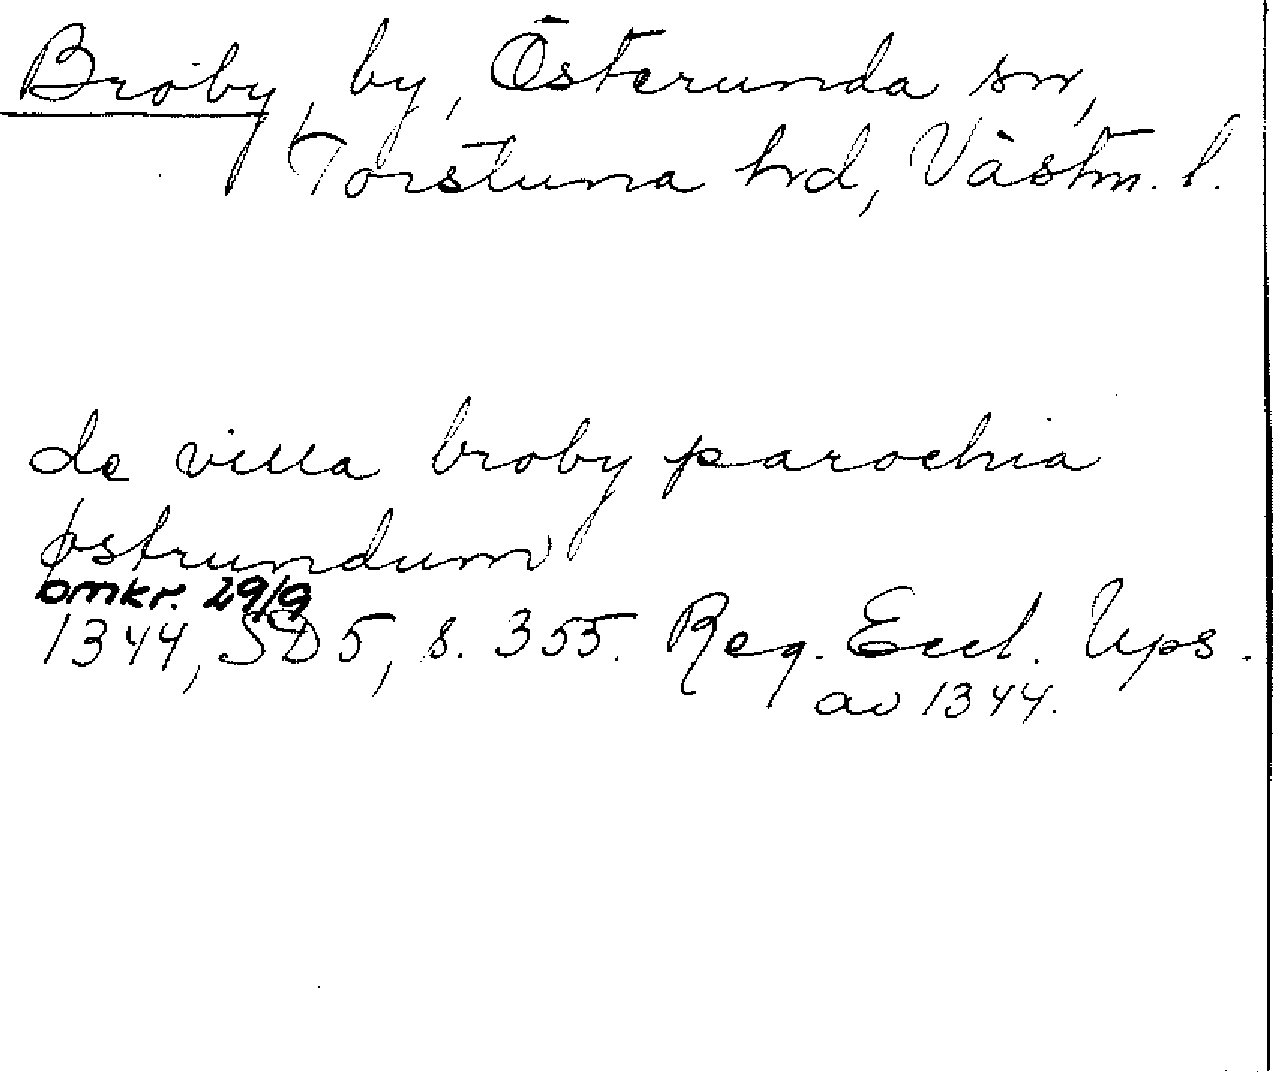 Broby, by, Österunda sn,
Torstuna hd, Västm. l.
de villa broby parochia
østrundum
omkr. 29/9
1344, SD 5, s. 355. Reg. Eccl. Ups.
av 1344.